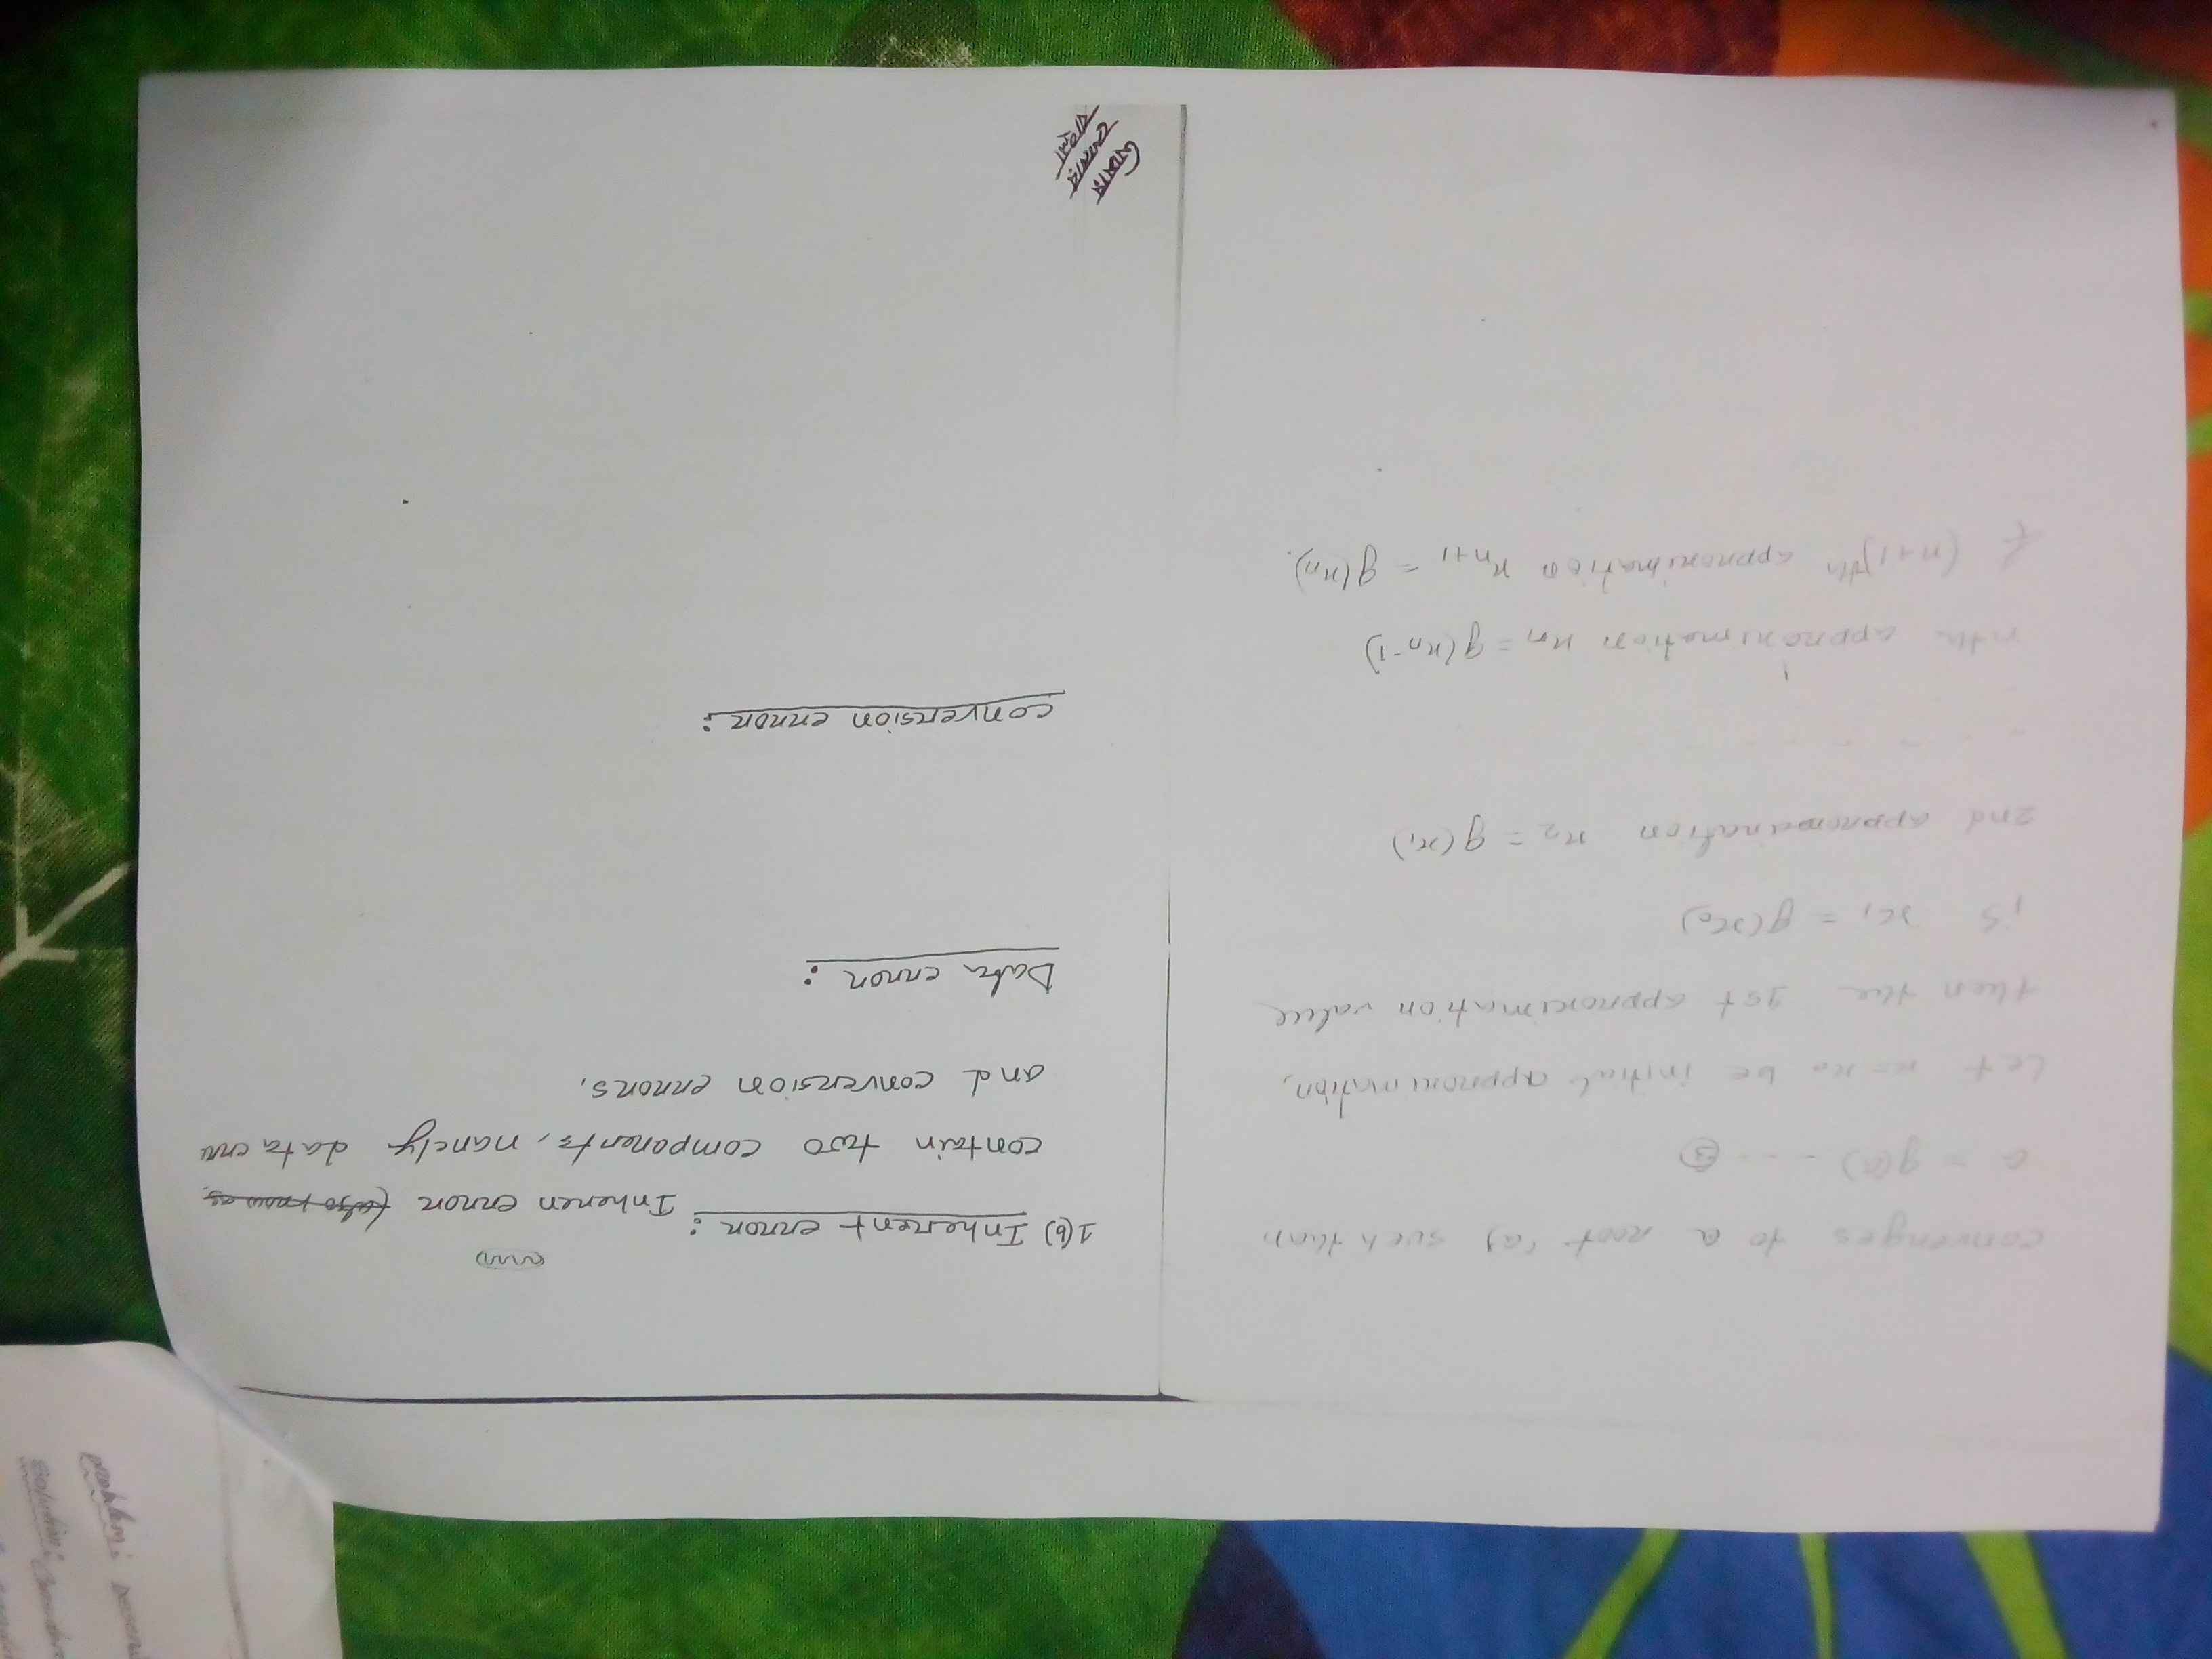 converges to a root (a) such than
a = g(a) - - - - ③
Let x = x₀ be initial approximation,
then the 1st approximation value
is x₁ = g(x₀)
2nd approximation x₂ = g(x₁)
- - - - - -
nth approximation xn = g(xn-1)
& (n+1)th approximation xn+1 = g(xn).
1(b) Inherent error :
Inheren error (also know as
contain two components, namely data erro
and conversion errors.
Data error :
conversion error :
problem:
solution: